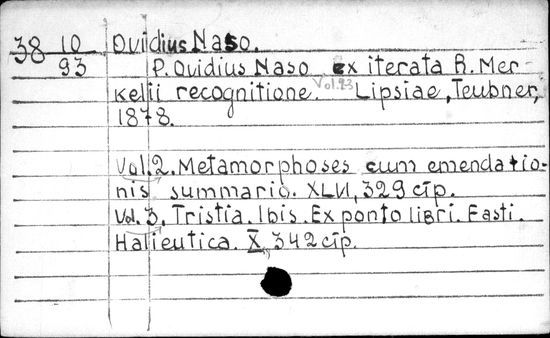 38 10 Ovidius Naso.
93 P. Ovidius Naso ex iterata R. Mer-
kelii recognitione. Vol. 2.3 Lipsiae, Teubner,
1878.
Vol. 2. Metamorphoses cum emendatio-
nis summario. XLVI, 329 стр.
Vol. 3. Tristia. Ibis. Ex ponto libri. Fasti.
Halieutica. X, 342 стр.